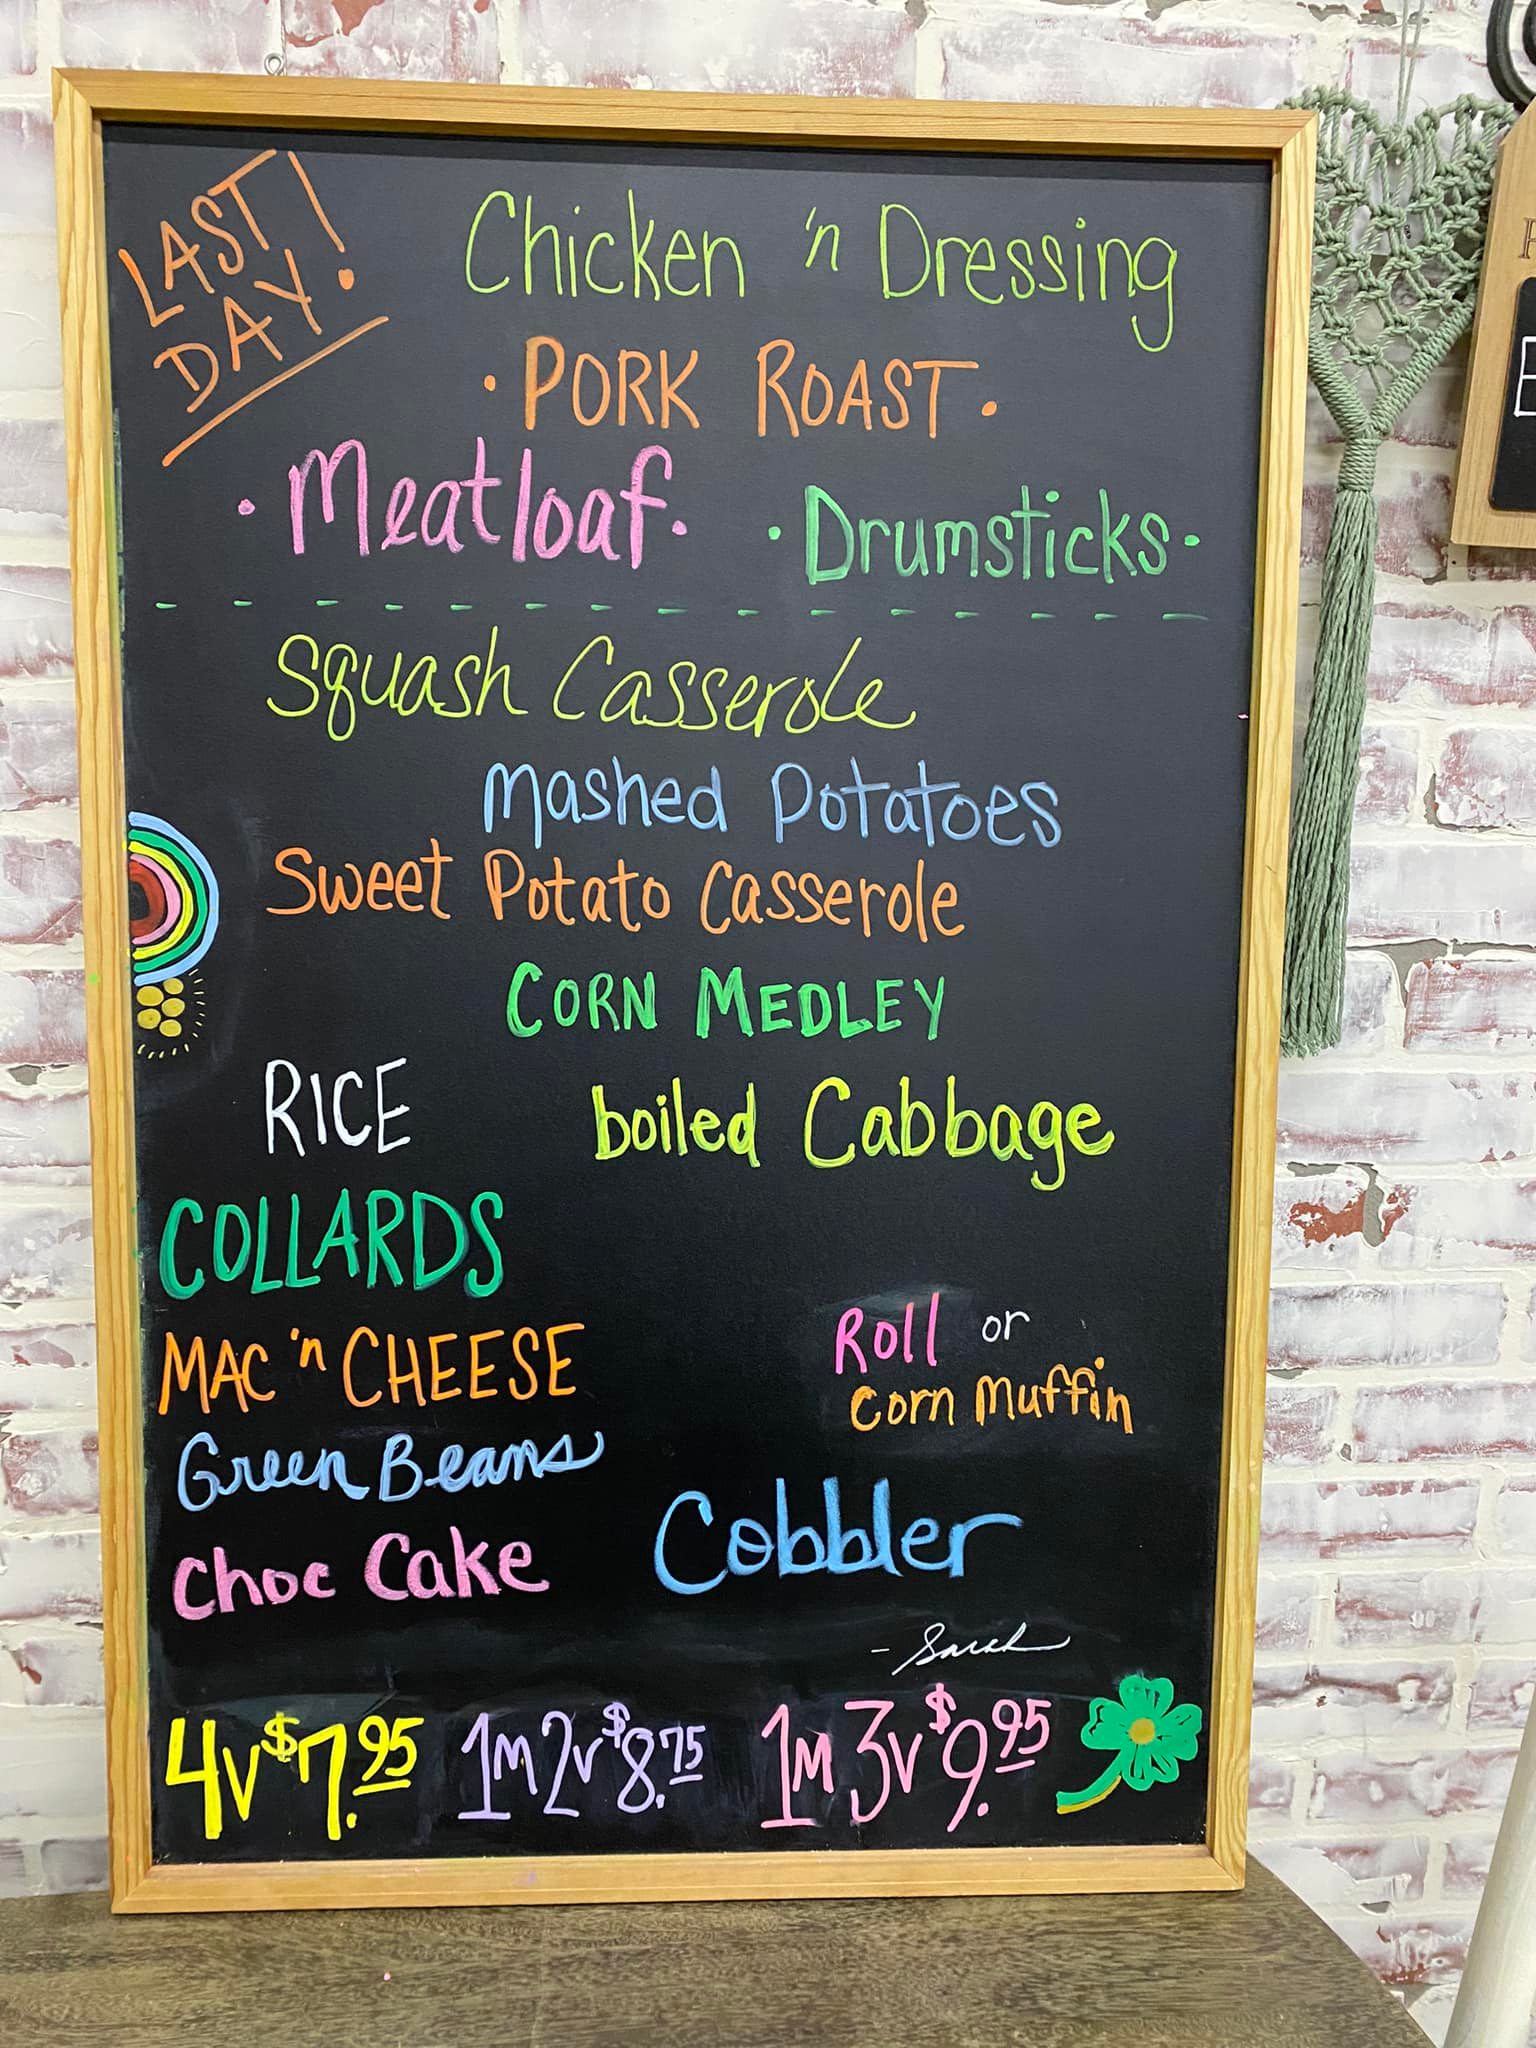 LAST
DAY!
Chicken 'n Dressing
· PORK ROAST ·
· Meatloaf · · Drumsticks ·
Squash Casserole
Mashed Potatoes
Sweet Potato Casserole
CORN MEDLEY
RICE boiled Cabbage
COLLARDS
MAC 'n CHEESE
Roll or
Corn Muffin
Green Beans
Choc Cake
Cobbler
- Sarah
4v $7.95 1m 2v $8.75 1M 3v $9.95